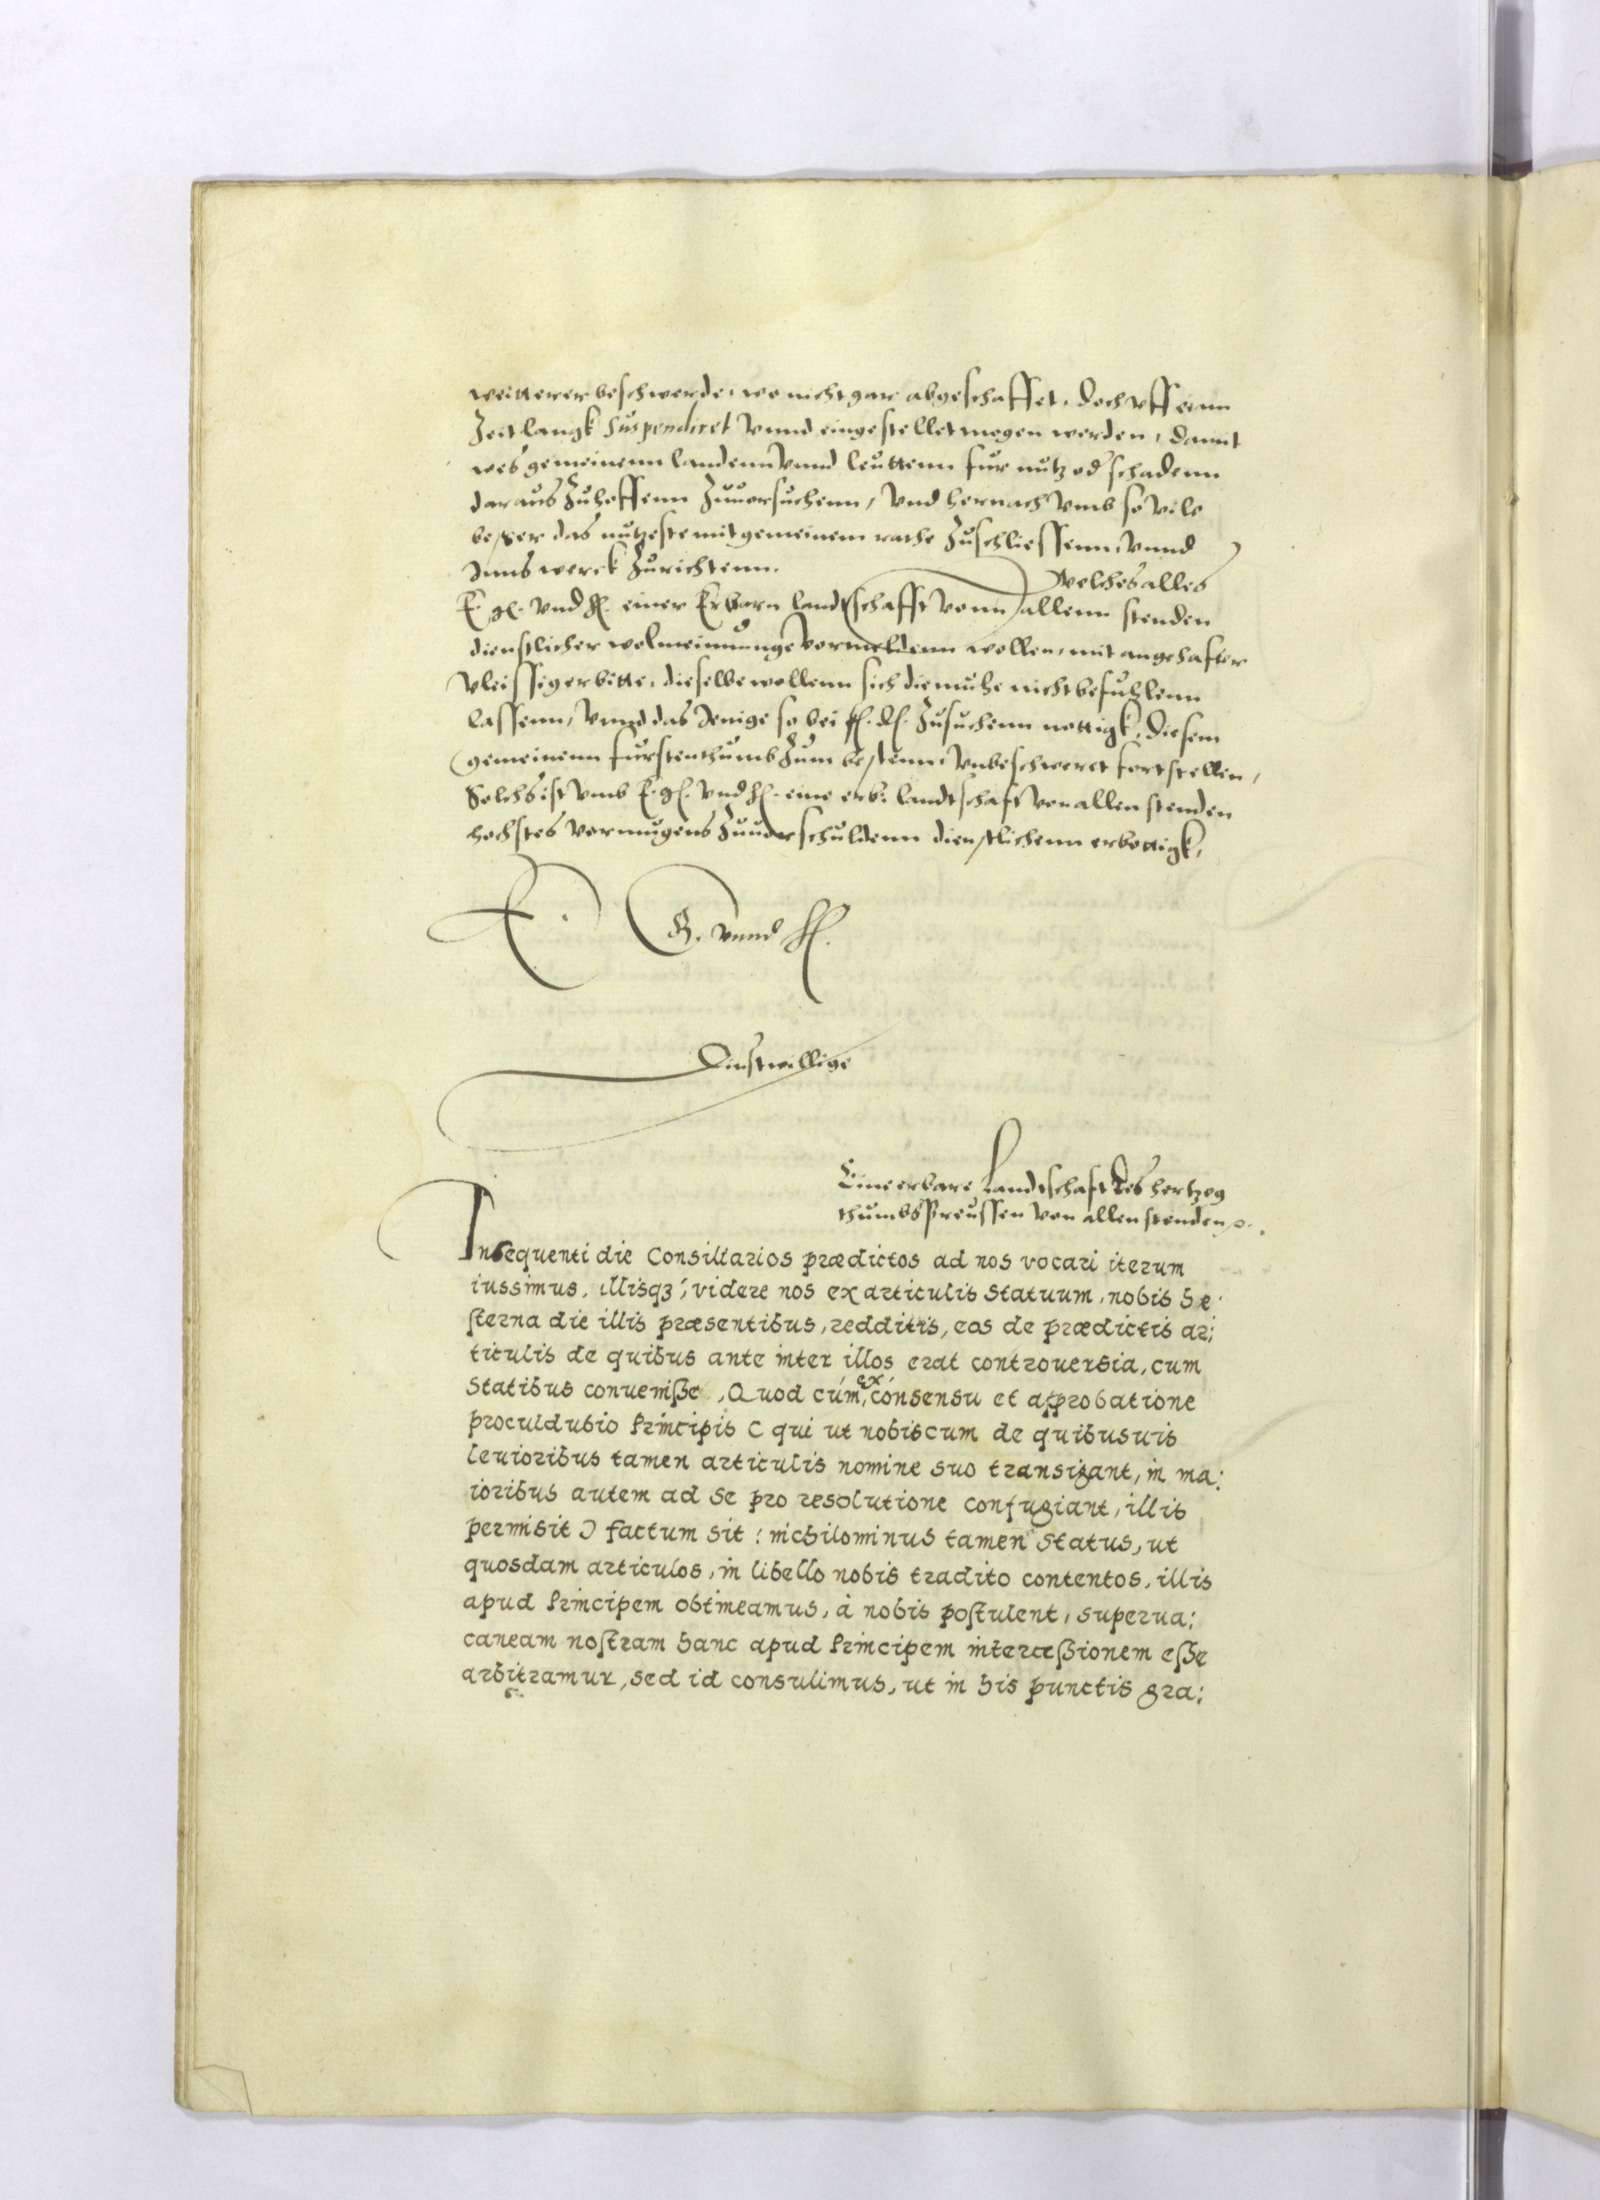 weitterer beschwerde, wo nicht gar abgeschaffet, doch vff einn
Zeitlangk suspendiret vnnd eingestellet mogen werden, damit
wes gemeinenn landenn vnnd leuttenn fur nutz od schadenn
daraus Zuhoffenn Zuuorsuchenn, vnd hernach vmb so vile
besser das nutzeste mit gemeinem rathe Zuschliessenn, vnnd
Inns werck Zurichtenn. Welches alles
E. g. vnd h. einer Erbarn landtschafft vonn allenn stenden
dienstlicher wolmeinnunge vormeldenn wollen, mit angehafter
vleissiger bitte, dieselbe wollenn sich die muhe nicht befuhlenn
lassenn, vnnd das Jenige so bei f. d. Zusuchenn nottigk, diesem
gemeinenn furstenthumb Zum bestenn, vnbeschweret fortstellen,
Solchs ist vmb E. g. vnd h. eine erb: landtschaft von allen stenden
hochstes vormugens Zuuorschuldenn dienstlichenn erbottigk,
E. G. vnnd H.
Dinstwillige
Eine erbare Landtschaft des hertzog
thumbs Preussen von allen stenden
Insequenti die Consiliarios prædictos ad nos vocari iterum
iussimus, illisqꝫ, videre nos ex articulis Statuum, nobis he
sterna die illis præsentibus, redditis, eos de prædictis ar:
ticulis de quibus ante inter illos erat controuersia, cum
Statibus conuenisse, Quod cúm ex consensu et approbatione
proculdubio Principis ( qui ut nobiscum de quibusuis
leuioribus tamen articulis nomine suo transigant, in ma:
ioribus autem ad se pro resolutione confugiant, illis
permisit ) factum sit: nichilominus tamen Status, ut
quosdam articulos, in libello nobis tradito contentos, illis
apud Principem obtineamus, à nobis postulent, superua:
caneam nostram hanc apud Principem intercessionem esse
arbitramur, sed id consulimus, ut in his punctis gra: